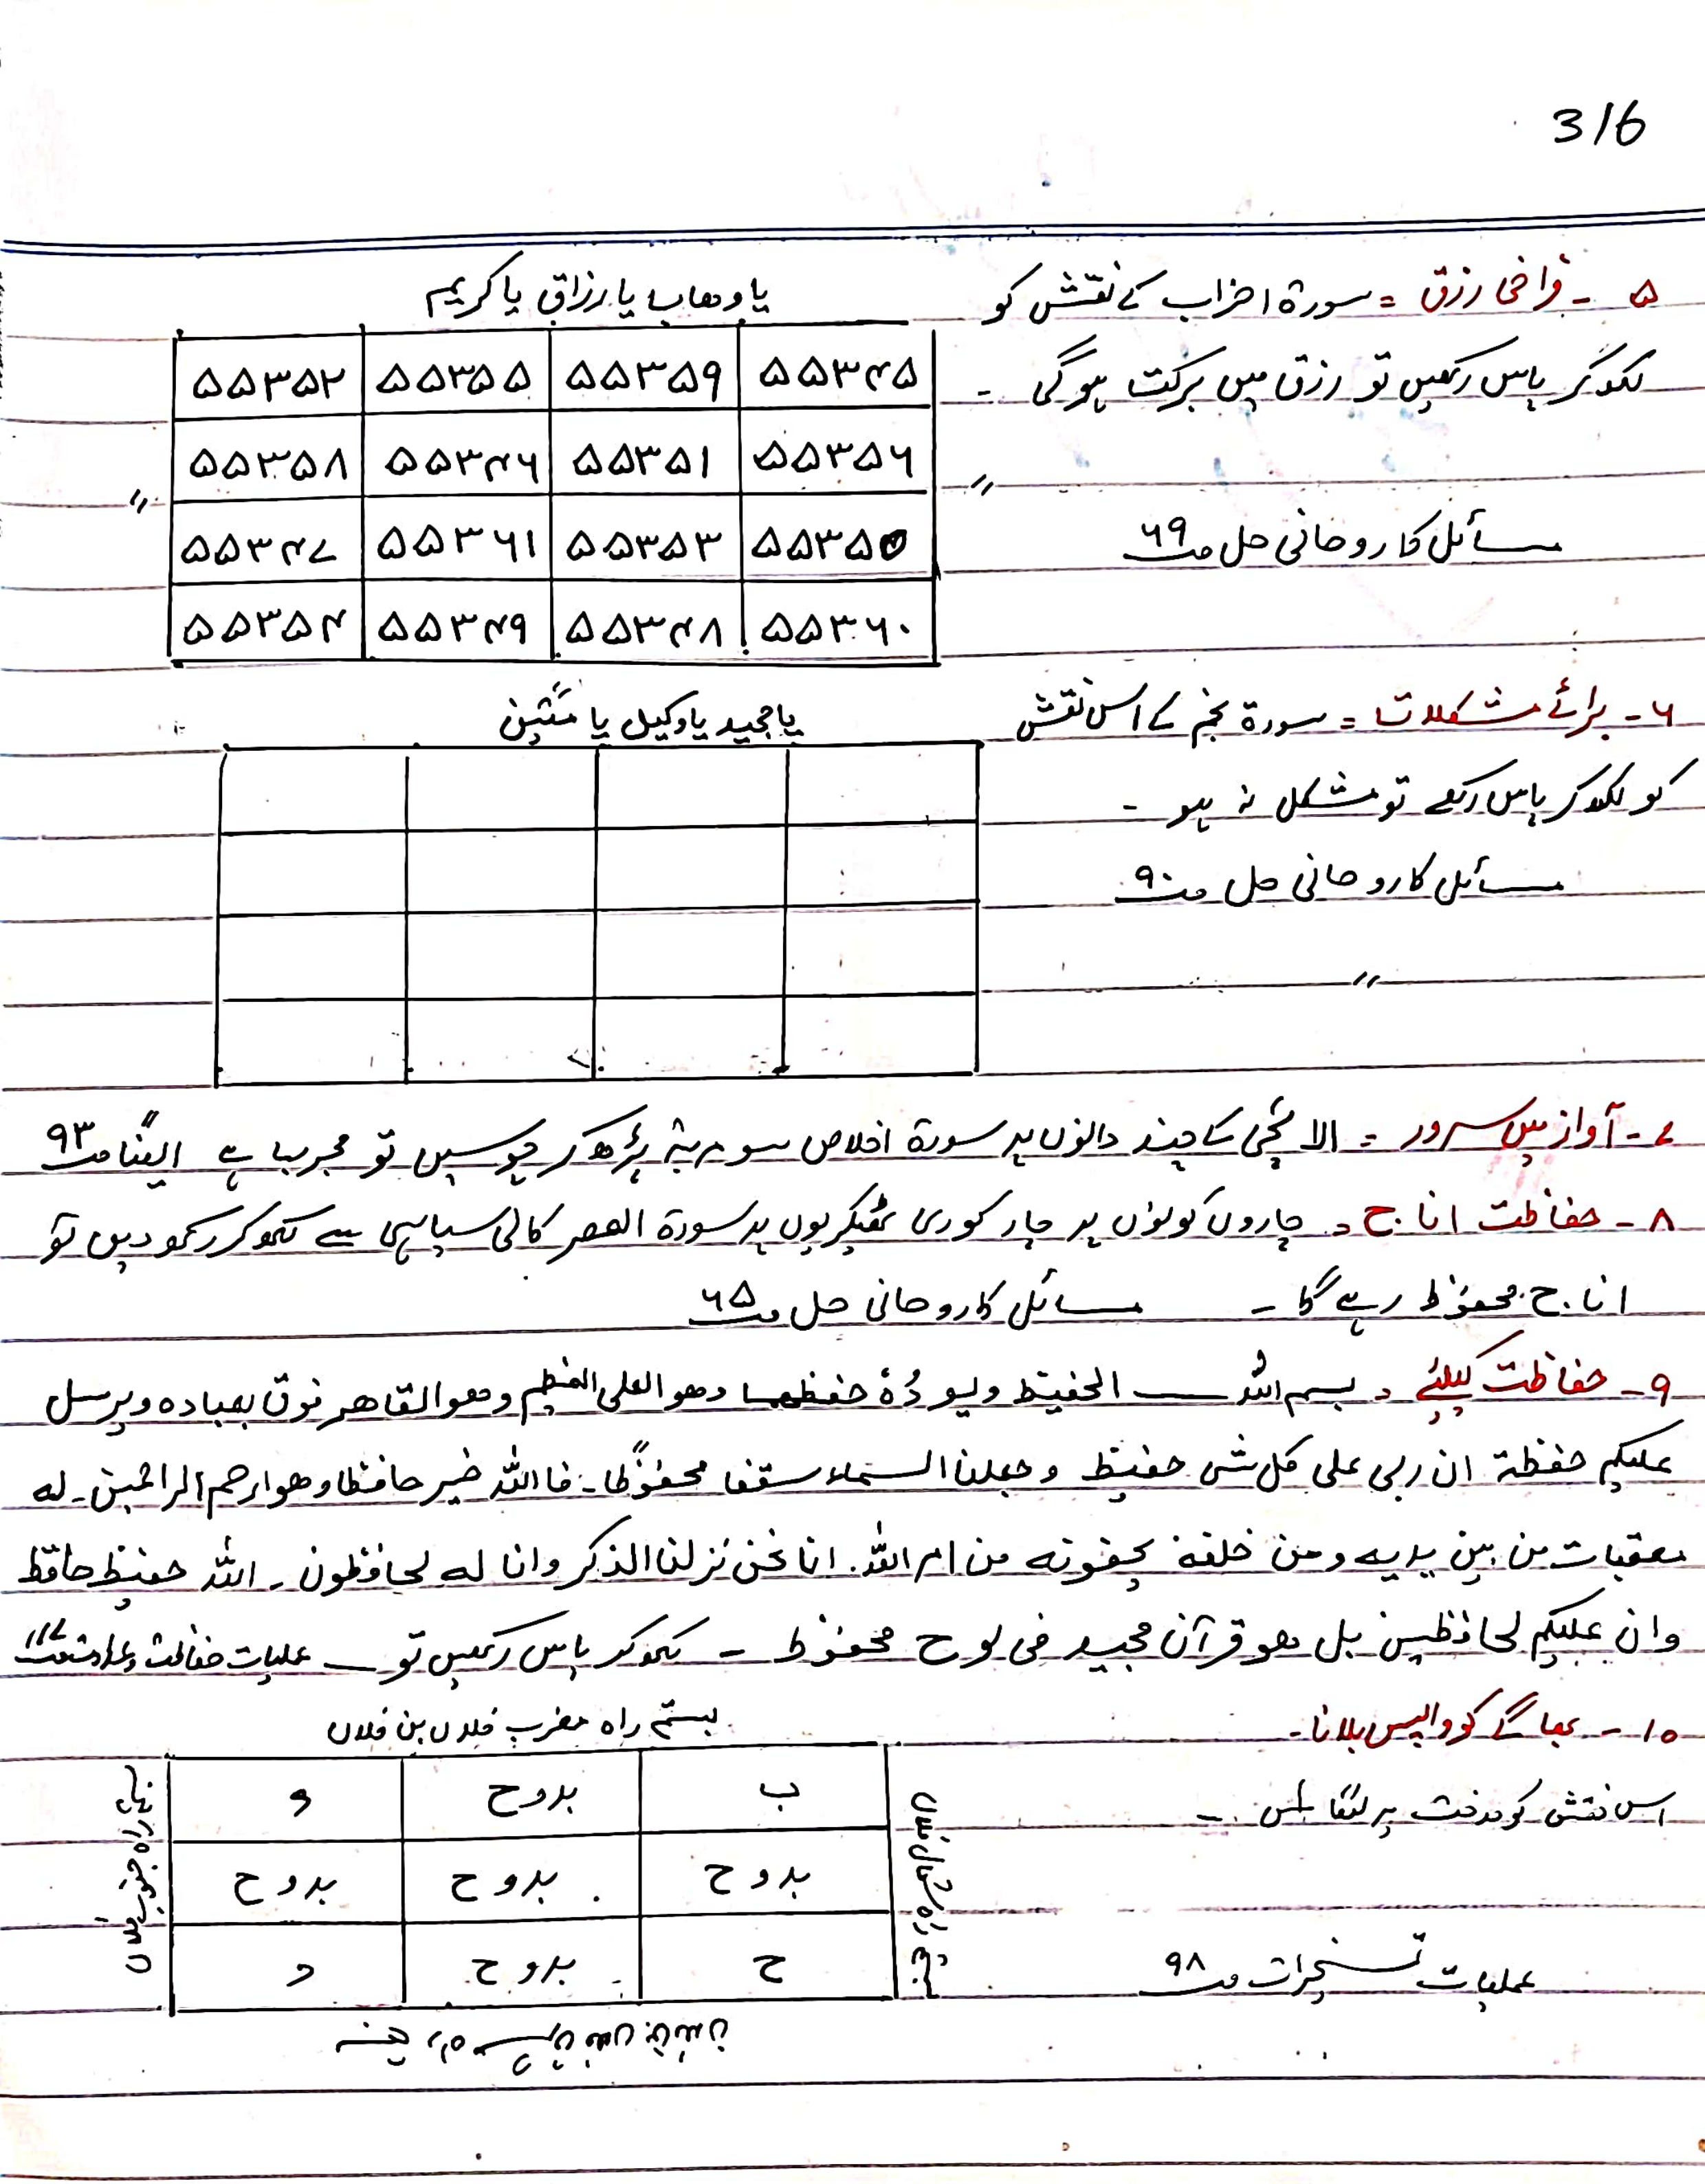 316
۵ - فراخی رزق = سورۃ احزاب کے نقش کو
لکھ کر پاس رکھیں تو رزق میں برکت ہوگی -
〃
مسائل کا روحانی حل صـ ۶۹
یا وھاب یا رزاق یا کریم
۵۵۳۵۲ ۵۵۳۵۵ ۵۵۳۵۹ ۵۵۳۴۵
۵۵۳۵۸ ۵۵۳۴۶ ۵۵۳۵۱ ۵۵۳۵۶
۵۵۳۴۷ ۵۵۳۶۱ ۵۵۳۵۳ ۵۵۳۵۰
۵۵۳۵۴ ۵۵۳۴۹ ۵۵۳۴۸ ۵۵۳۶۰
〃
۶ - برائے مشکلات = سورۃ نجم کے اس نقش
کو لکھ کر پاس رکھے تو مشکل نہ ہو -
مسائل کا روحانی حل صـ ۹۰
〃
یا مجید یا وکیل یا متین
۷ - آواز میں سرور = الائچی کے چند دانوں پر سورۃ اخلاص سو مرتبہ پڑھ کر چوسیں تو مجرب ہے ایضًا صـ ۹۳
۸ - حفاظت اناج = چاروں کونوں پر چار کوری ٹھیکریوں پر سورۃ العصر کالی سیاہی سے لکھ کر رکھ دیں تو
اناج محفوظ رہے گا - مسائل کا روحانی حل صـ ۶۵
۹ - حفاظت کیلئے = بسم اللہ ــــ الحفیظ ولیودُہٗ حفظھما وھو العلی العظیم وھو القاھر فوق بعبادہ ویرسل
علیکم حفظۃ ان ربی علی کل شی حفیظ وجعلنا السماء سقفا محفوظًا - فاللہ خیر حافظا وھو ارحم الراحمین - لہ
معقبات من بین یدیہ ومن خلفہ یحفظونہ من امر اللہ . انا نحن نزلنا الذکر وانا لہ لحافظون - اللہ حفیظ حافظ
وان علیکم لحافظین بل ھو قرآن مجید فی لوح محفوظ - لکھ کر پاس رکھیں تو ــ عملیات حفاظت
۱۰ - بھاگے کو واپس بلانا -
اس نقش کو درخت پر لٹکائیں -
عملیات تسخیرات صـ ۹۸
بستم راہ مغرب فلاں بن فلاں
و بدوح ب
بدوح بدوح بدوح
د بدوح ح
راہ جنوب فلاں
راہ شمال فلاں